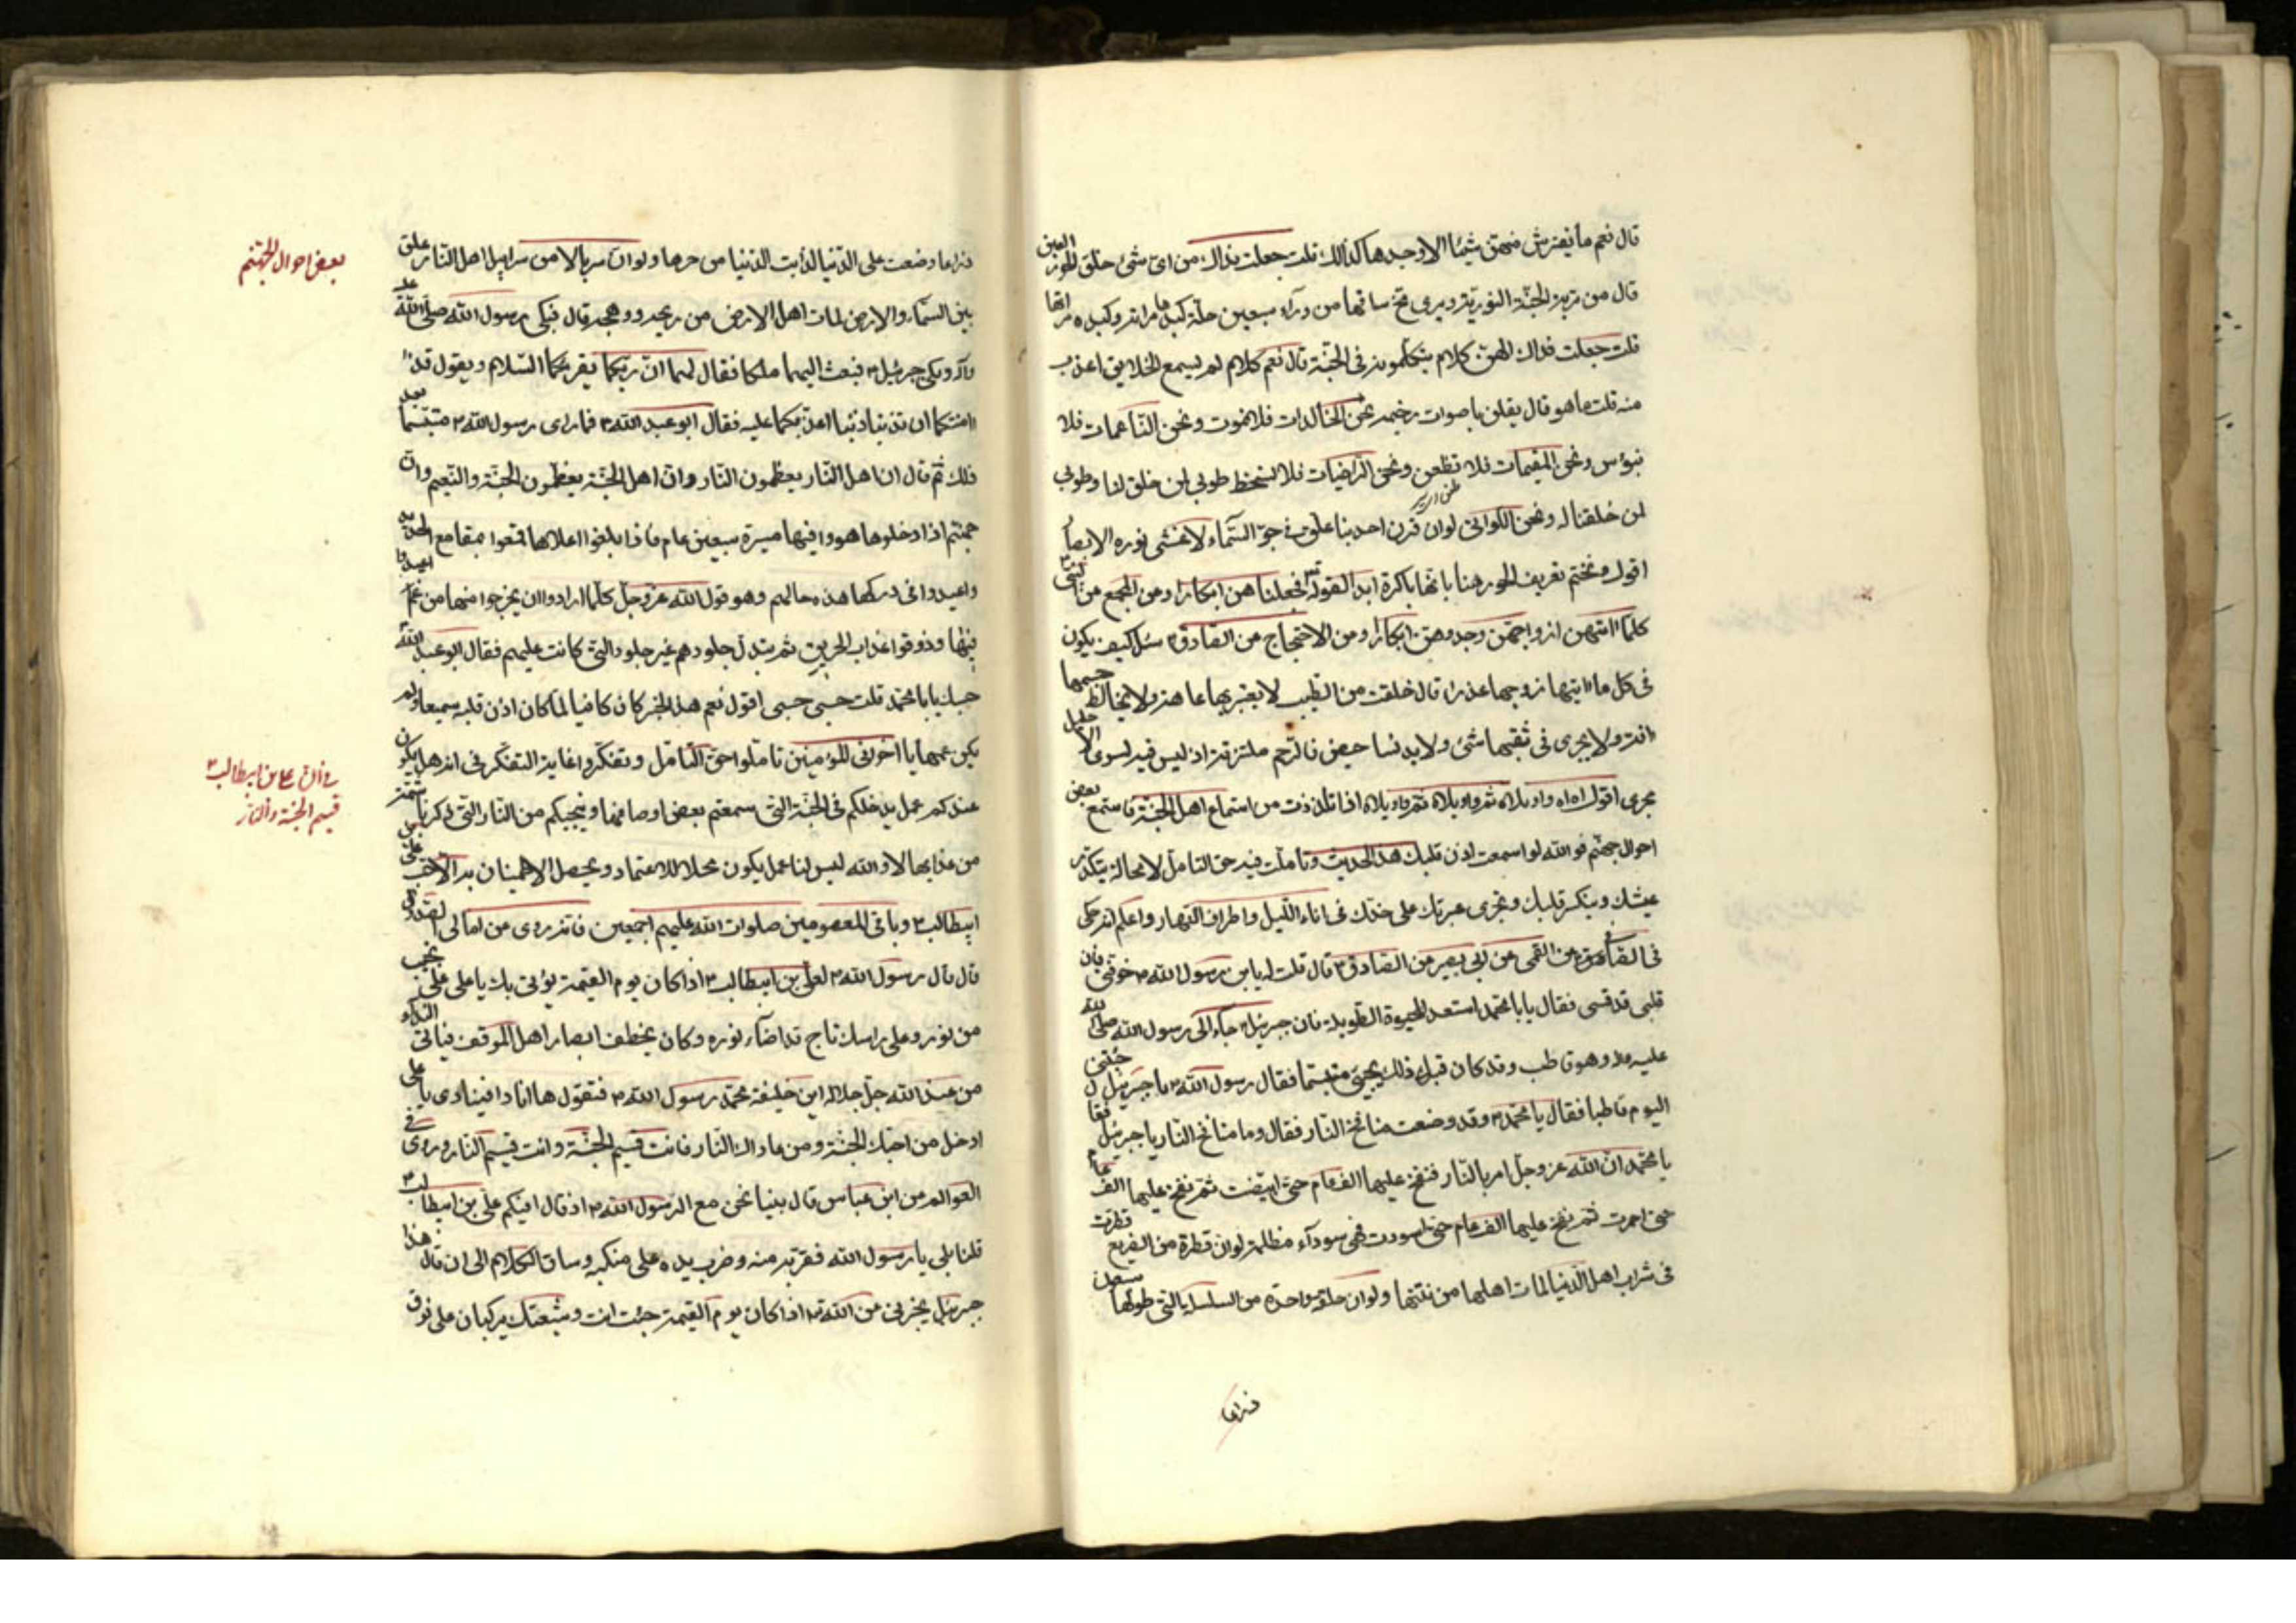 قال نعم ما يفترش منهن شيئا الا وجدها كذلك قلت جعلت فداك من اى شئ خلق الحور العين
قال من تربة الجنة النورية ويرى مخ ساقها من وراء سبعين حلة كبدها مراته وكبده مراتها
قلت جعلت فداك الهن كلام يتكلمون فى الجنة قال نعم كلام لم يسمع الخلايق اعذب
منه قلت ما هو قال يقلن باصوات رخيمه نحن الخالدات فلا نموت ونحن الناعمات فلا
نبؤس ونحن المقيمات فلا نظعن ونحن الراضيات فلا نسخط طوبى لمن خلق لنا وطوبى
لمن خلقنا له ونحن اللواتى لوان قرن احدينا علق فى جو السماء لاغشى نوره الابصار
اقول ونختم تعريف الحور هنا بانها باكرة ابدا لقوله تع فجعلناهن ابكارا وعن المجمع عن النبى
كلما اتتهن ازواجهن وجدوهن ابكارا وعن الاحتجاج عن الصادق سئل كيف يكون
فى كل ما اتيها زوجها عذراء قال خلقت من الطيب لا يعتريها عاهة ولا يخالط جسمها
افة ولا يجرى فى ثقبها شئ ولا يدنسها حيض فالرحم ملتزقة اذ ليس فيه لسوى الاحليل
مجرى اقول اه اه واويلاه ثم واويلاه ثم واويلاه اذا تلذذت من استماع اهل الجنة فاستمع بعض
احوال جهنم فوالله لو اسمعت اذن قلبك هذا الحديث وتاملت فيه حق التامل لا محالة يتكدر
عيشك وينكر قلبك وتجرى عبرتك على خدك فى اناء الليل واطراف النهار واعلم انه حكى
فى الصافى عن القمى عن ابى بصير عن الصادق قال قلت له يابن رسول الله خوفنى فان
قلبى قد قسى فقال يا با محمد استعد للحيوة الطويلة فان جبرئيل جاء الى رسول الله صلى الله
عليه واله وهو قاطب وقد كان قبل ذلك يجئ متبسما فقال رسول الله يا جبرئيل جئتنى
اليوم قاطبا فقال يا محمد قد وضعت منافخ النار فقال وما منافخ النار يا جبرئيل فقال
يا محمد ان الله عز وجل امر بالنار فنفخ عليها الف عام حتى ابيضت ثم نفخ عليها الف عام
حتى احمرت ثم نفخ عليها الف عام حتى اسودت فهى سوداء مظلمة لوان قطرة من الضريع قطرت
فى شراب اهل الدنيا لمات اهلها من نتنها ولوان حلقة واحدة من السلسلة التى طولها سبعون
ذراعا
ذراعا وضعت على الدنيا لذابت الدنيا من حرها ولوان سربالا من سرابيل اهل النار علق
بين السماء والارض لمات اهل الارض من ريحه ووهجه قال فبكى رسول الله صلى الله عليه
واله وبكى جبرئيل فبعث اليهما ملكا فقال لهما ان ربكما يقرئكما السلام ويقول قد
امنتكما ان تذنبا ذنبا اعذبكما عليه فقال ابو عبد الله فما راى رسول الله متبسما بعد
ذلك ثم قال ان اهل النار يعظمون النار وان اهل الجنة يعظمون الجنة والنعيم وان
جهنم اذا دخلوها هووا فيها مسيرة سبعين عام فاذا بلغوا اعلاها قمعوا بمقامع الحديد
واعيدوا فى دركها هذه حالهم وهو قول الله عز وجل كلما ارادوا ان يخرجوا منها من غم اعيدوا
فيها وذوقوا عذاب الحريق ثم تبدل جلودهم غير جلود التى كانت عليهم فقال ابو عبد الله
حسبك يا با محمد قلت حسبى حسبى اقول نعم هذا الخبر كان كافيا لما كان اذن قلبه سميعا ولم
يكن عمها يا اخونى المؤمنين تاملوا حق التامل وتفكروا غاية التفكر فى انه هل يكون
عندكم عمل يدخلكم فى الجنة التى سمعتم بعض اوصافها وينجيكم من النار التى ذكرنا شمة
من عذابها لا والله ليس لنا عمل يكون محلا للاعتماد ويحصل الاطمينان به الا حب على بن
ابيطالب وباقى المعصومين صلوات الله عليهم اجمعين فانه روى عن امالى الصدوق
قال قال رسول الله لعلى بن ابيطالب اذا كان يوم القيمة يؤتى بك يا على على نجيب
من نور وعلى راسك تاج قد اضاء نوره وكان يخطف ابصار اهل الموقف فياتى النداء
من عند الله جل جلاله اين خليفة محمد رسول الله فتقول ها انا ذا فينادى يا على
ادخل من احبك الجنة ومن عاداك النار فانت قسيم الجنة وانت قسيم النار وروى فى
العوالم عن ابن عباس قال بينا نحن مع الرسول الله اذ قال افيكم على بن ابيطالب
قلنا بلى يا رسول الله فقربه منه وضرب يده على منكبه وساق الكلام الى ان قال هذا
جبرئيل يخبرنى عن الله اذا كان يوم القيمة جئت انت وشيعتك يركبان على نوق
بعض احوال الجهنم
فى ان على بن ابيطالب
قسيم الجنة والنار